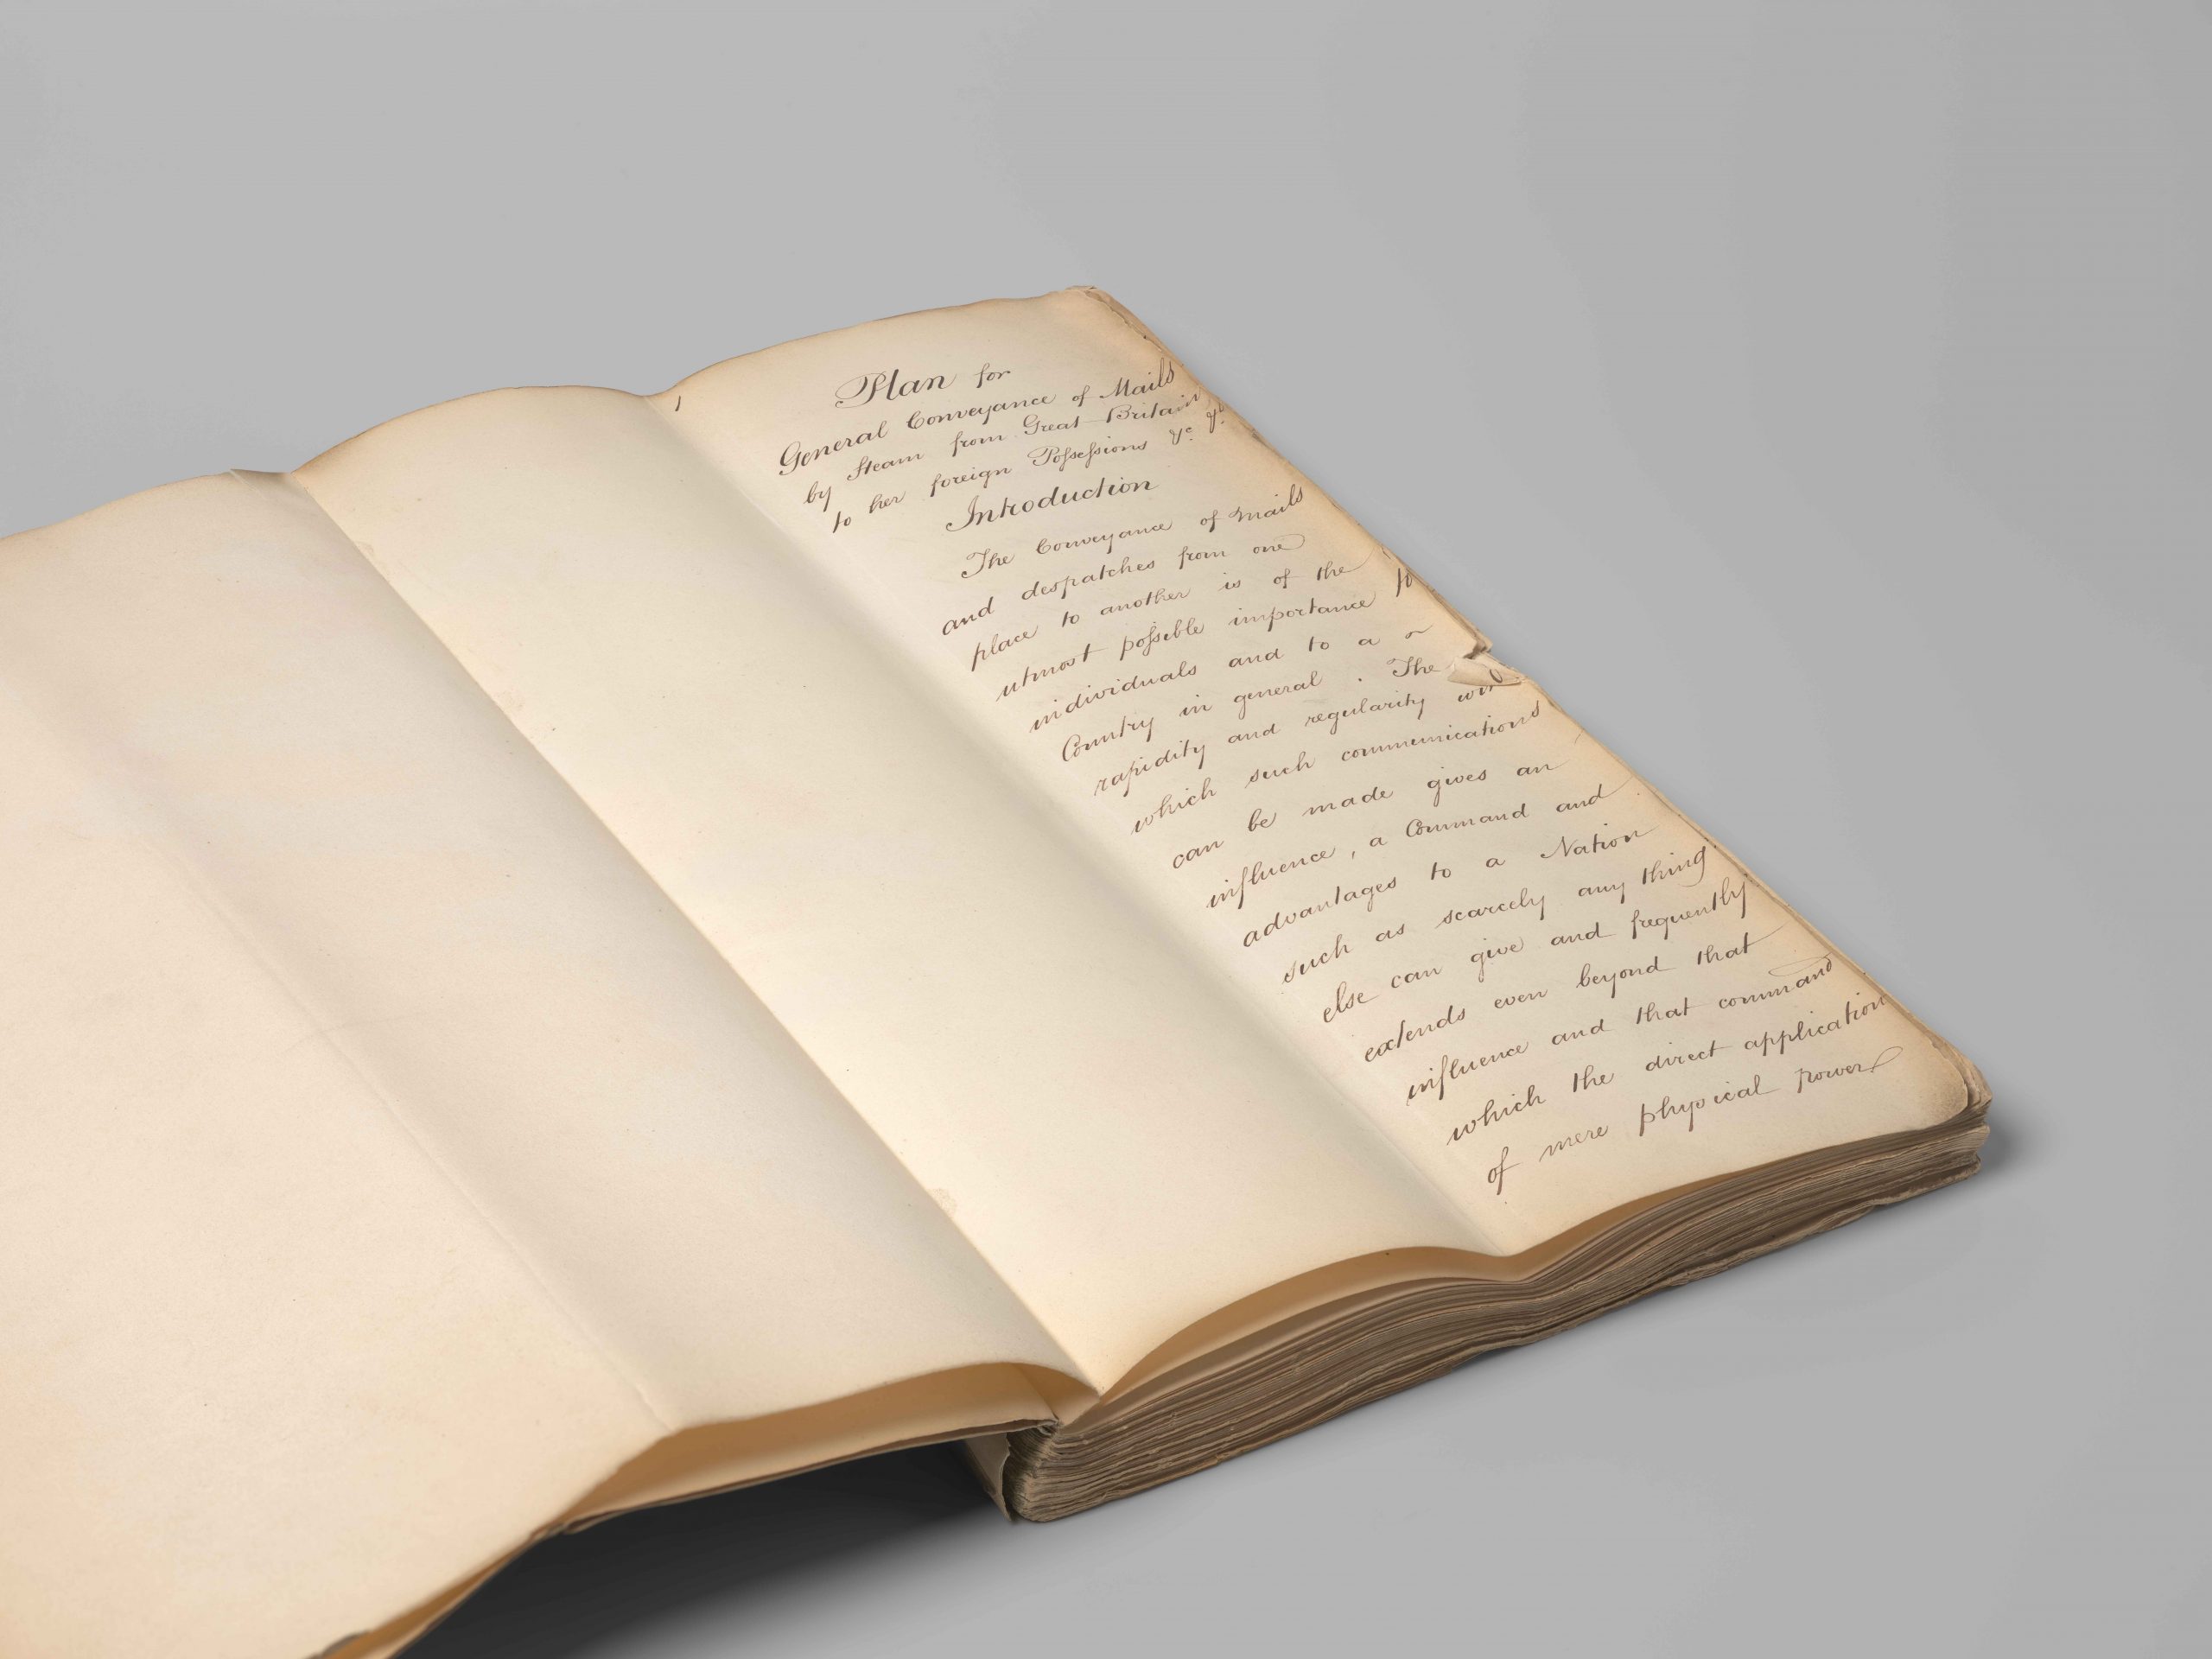 1
Plan for
General Conveyance of Mails
by Steam from Great Britain
to her foreign Poſseſsions &c &c
Introduction
The Conveyance of Mails
and despatches from one
place to another is of the
utmost poſsible importance to
individuals and to a ~
Country in general. The
rapidity and regularity with
which such communications
can be made gives an
influence, a Command and
advantages to a Nation
such as scarcely any thing
else can give and frequently
extends even beyond that
influence and that command
which the direct application
of mere physical power